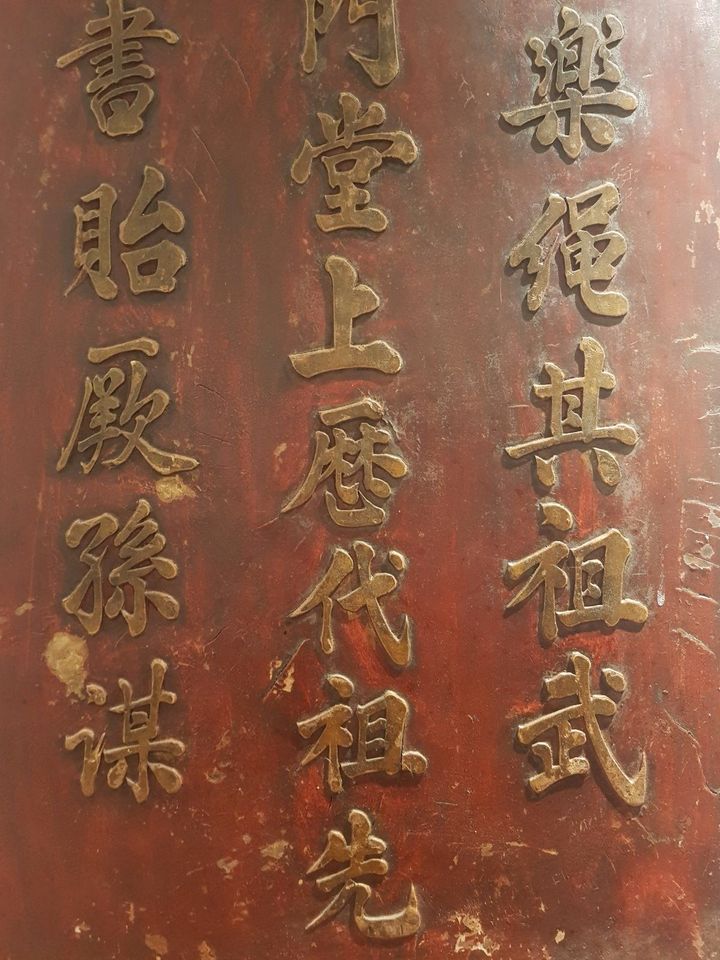 樂绳其祖武
門堂上暦代祖先
書貽厥孫谋